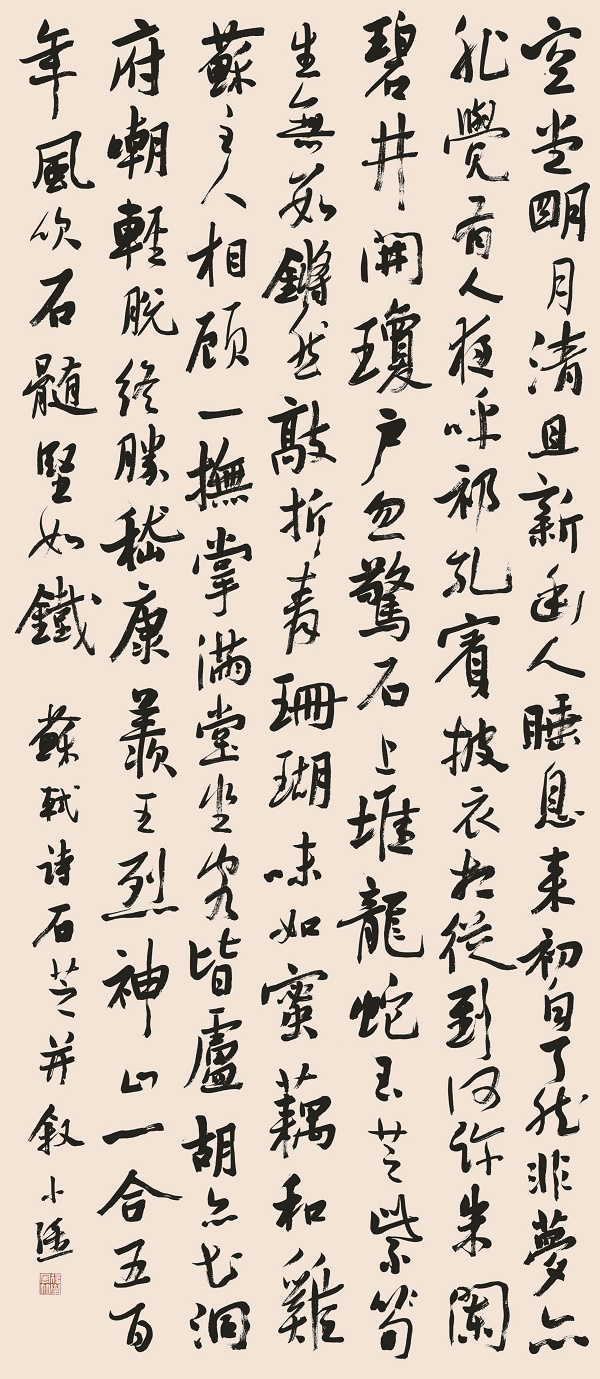 空堂明月清且新幽人睡息来初匀了然非夢亦
非覺有人夜呼祁孔賓披衣相從到何許朱闌
碧井開瓊户忽驚石上堆龍蛇玉芝紫筍
生無數鏘然敲折青珊瑚味如蜜藕和雞
蘇主人相顧一撫掌滿堂坐客皆盧胡亦知洞
府嘲輕脫終勝嵇康羨王烈神山一合五百
年風吹石髓堅如鐵 蘇軾詩石芝并叙 小